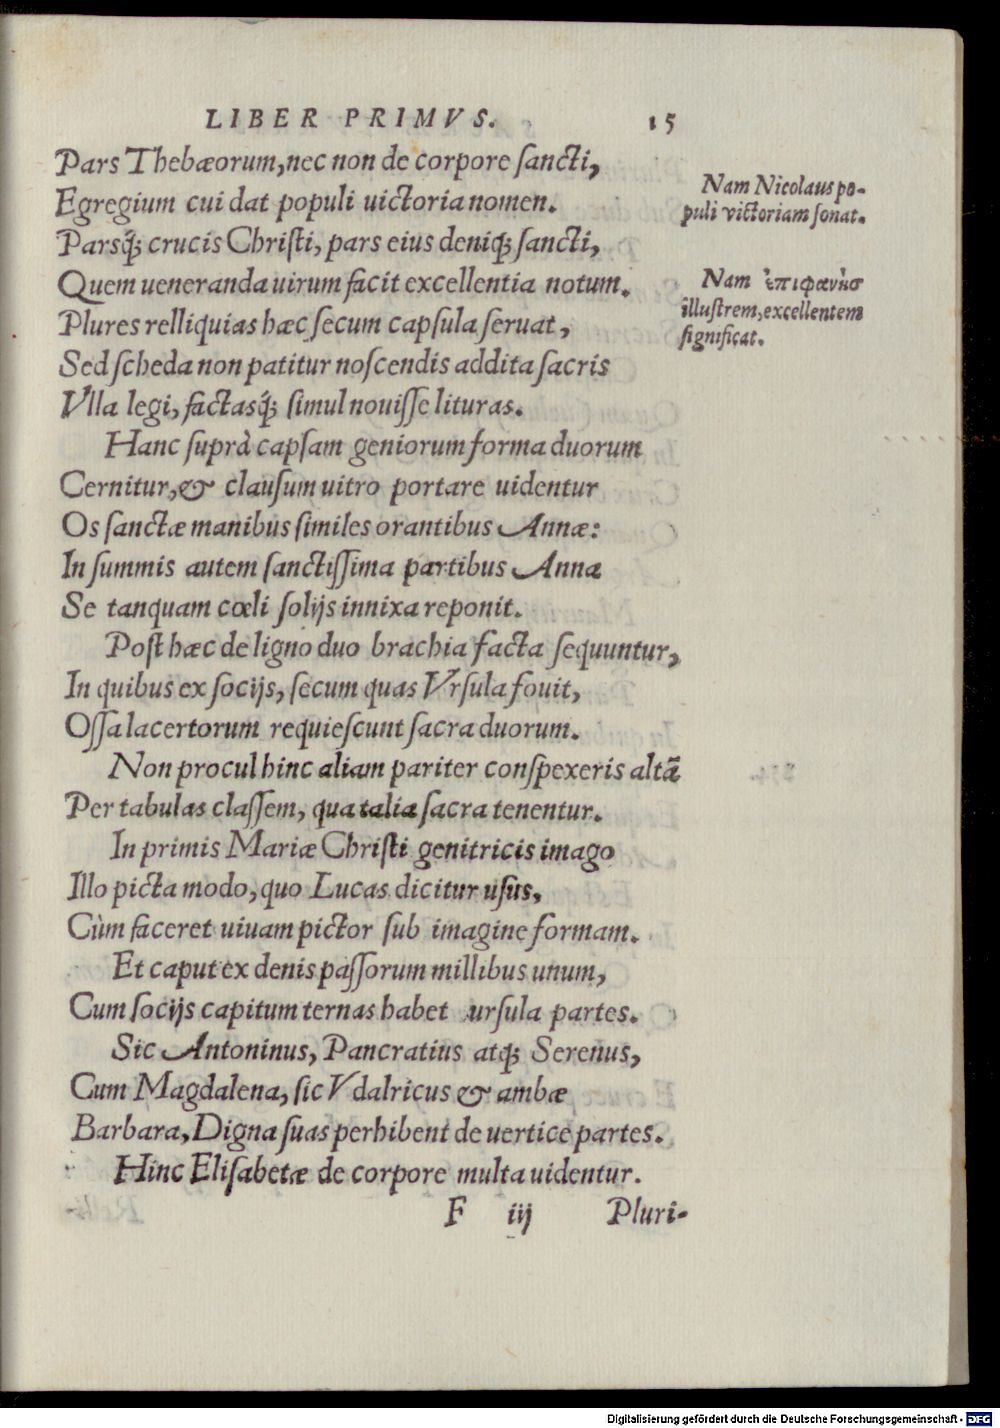 LIBER PRIMVS. 15
Pars Thebæorum, nec non de corpore sancti,
Egregium cui dat populi uictoria nomen.
Nam Nicolaus po-
puli victoriam sonat.
Parsq́; crucis Christi, pars eius deniq́; sancti,
Quem ueneranda uirum facit excellentia notum.
Nam ἐπιφανὴσ
illustrem, excellentem
significat.
Plures relliquias hæc secum capsula seruat,
Sed scheda non patitur noscendis addita sacris
Vlla legi, factasq́; simul nouisse lituras.
Hanc suprà capsam geniorum forma duorum
Cernitur, & clausum uitro portare uidentur
Os sanctæ manibus similes orantibus Annæ:
In summis autem sanctissima partibus Anna
Se tanquam cœli solijs innixa reponit.
Post hæc de ligno duo brachia facta sequuntur,
In quibus ex socijs, secum quas Vrsula fouit,
Ossa lacertorum requiescunt sacra duorum.
Non procul hinc aliam pariter conspexeris altã
Per tabulas classem, qua talia sacra tenentur.
In primis Mariæ Christi genitricis imago
Illo picta modo, quo Lucas dicitur usus,
Cùm faceret uiuam pictor sub imagine formam.
Et caput ex denis passorum millibus unum,
Cum socijs capitum ternas habet ursula partes.
Sic Antoninus, Pancratius atq́; Serenus,
Cum Magdalena, sic Vdalricus & ambæ
Barbara, Digna suas perhibent de uertice partes.
Hinc Elisabetæ de corpore multa uidentur.
F iij Pluri-
Digitalisierung gefördert durch die Deutsche Forschungsgemeinschaft - DFG